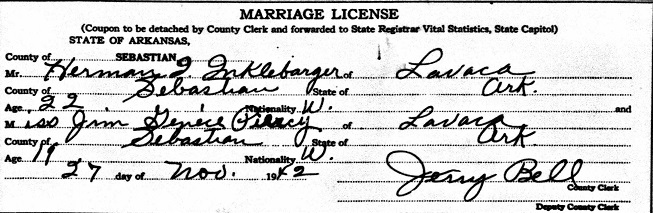 MARRIAGE LICENSE
(Coupon to be detached by County Clerk and forwarded to State Registrar Vital Statistics, State Capitol)
STATE OF ARKANSAS,
County of SEBASTIAN
Mr. Herman J. Inklebarger of Lavaca
County of Sebastian State of Ark.
Age 22 Nationality W. and
Miss Jim Genese of Lavaca
County of Sebastian State of Ark.
Age 19 Nationality W.
27 day of Nov. 1942 Jerry Bell
County Clerk
Deputy County Clerk